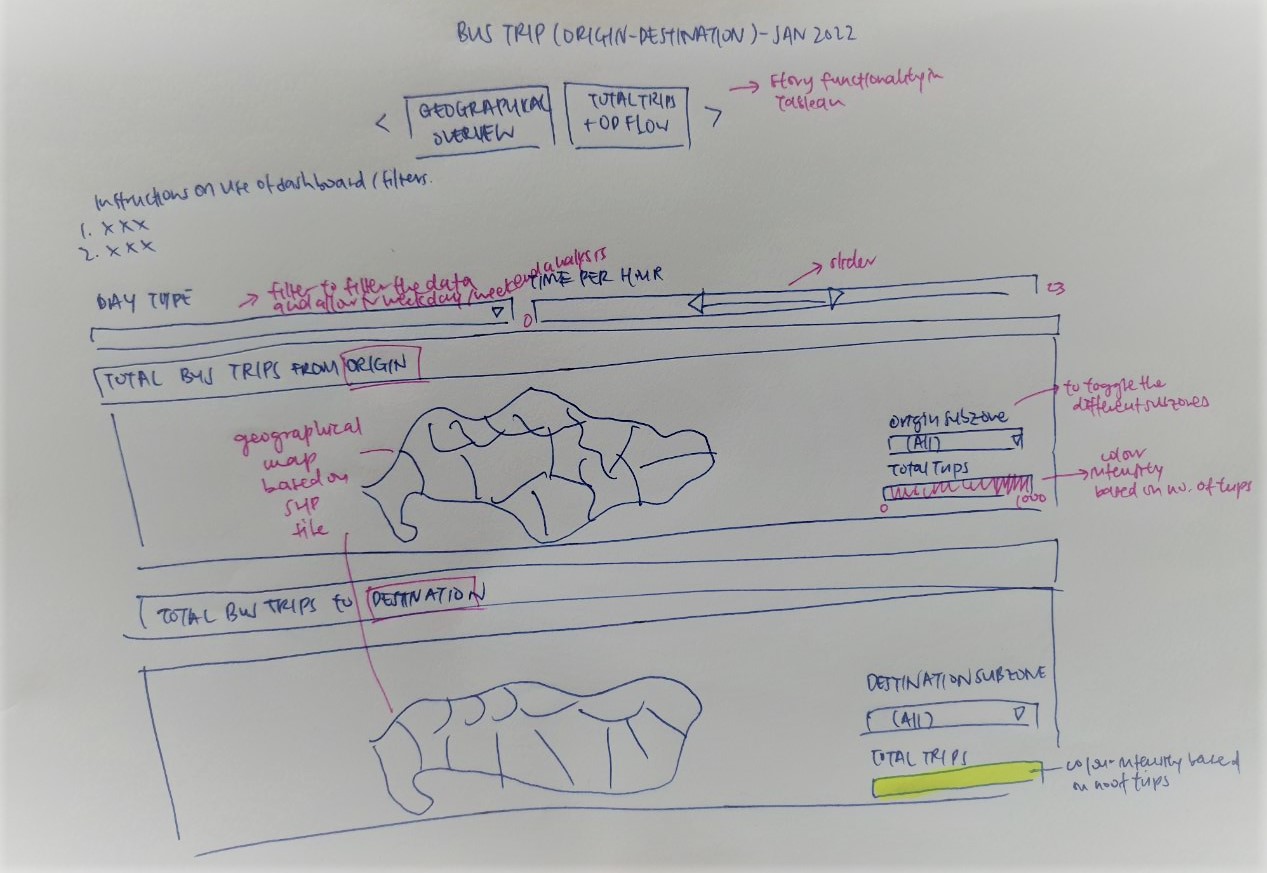 BUS TRIP (ORIGIN-DESTINATION) - JAN 2022
< GEOGRAPHICAL OVERVIEW
TOTAL TRIPS + OD FLOW >
→ story functionality in
Tableau
Instructions on use of dashboard / filters.
1. xxx
2. xxx
DAY TYPE
→ filter to filter the data
and allow for weekday/weekend analysis
TIME PER HOUR
→ slider
0
23
TOTAL BUS TRIPS FROM ORIGIN
geographical
map
based on
SHP
file
origin subzone
(All)
→ to toggle the
different subzones
Total Trips
0
1000
→ colour
intensity
based on no. of trips
TOTAL BUS TRIPS to DESTINATION
DESTINATION SUBZONE
(All)
TOTAL TRIPS
colour-intensity based
on no of trips